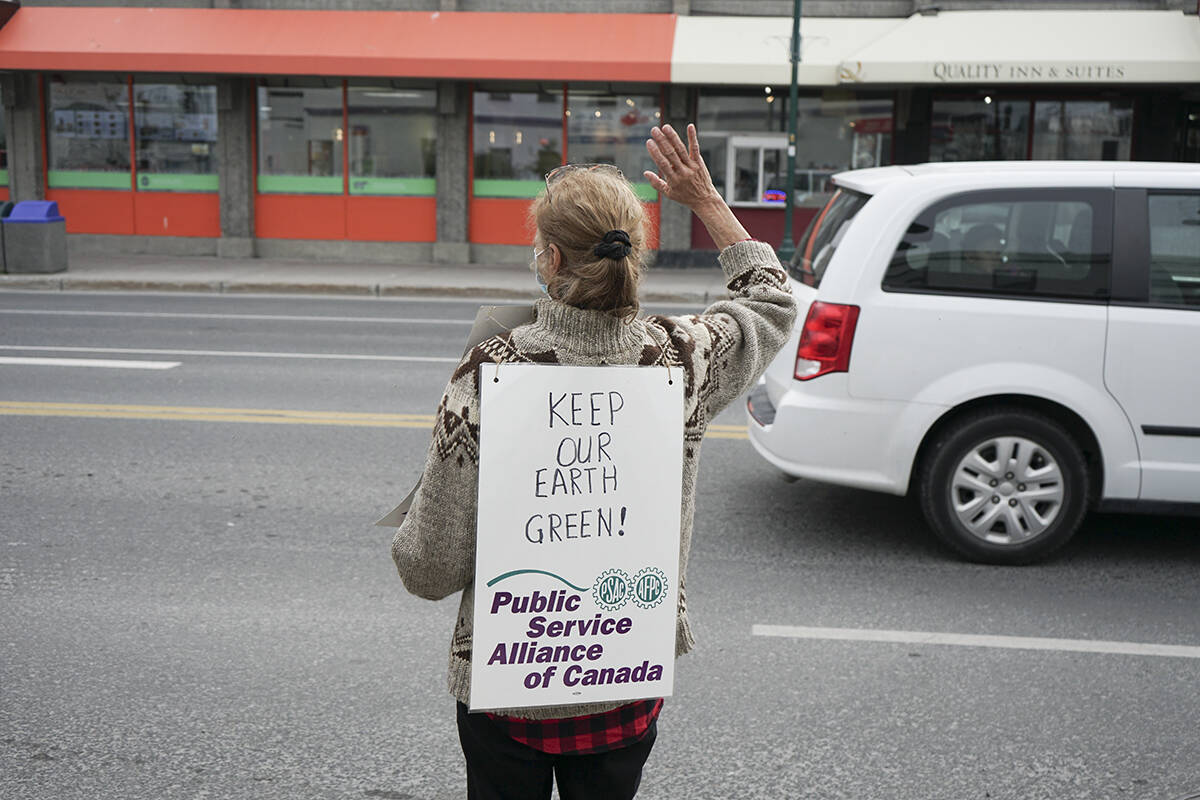 QUALITY INN & SUITES
KEEP
OUR
EARTH
GREEN!
PSAC AFPC
Public
Service
Alliance
of Canada